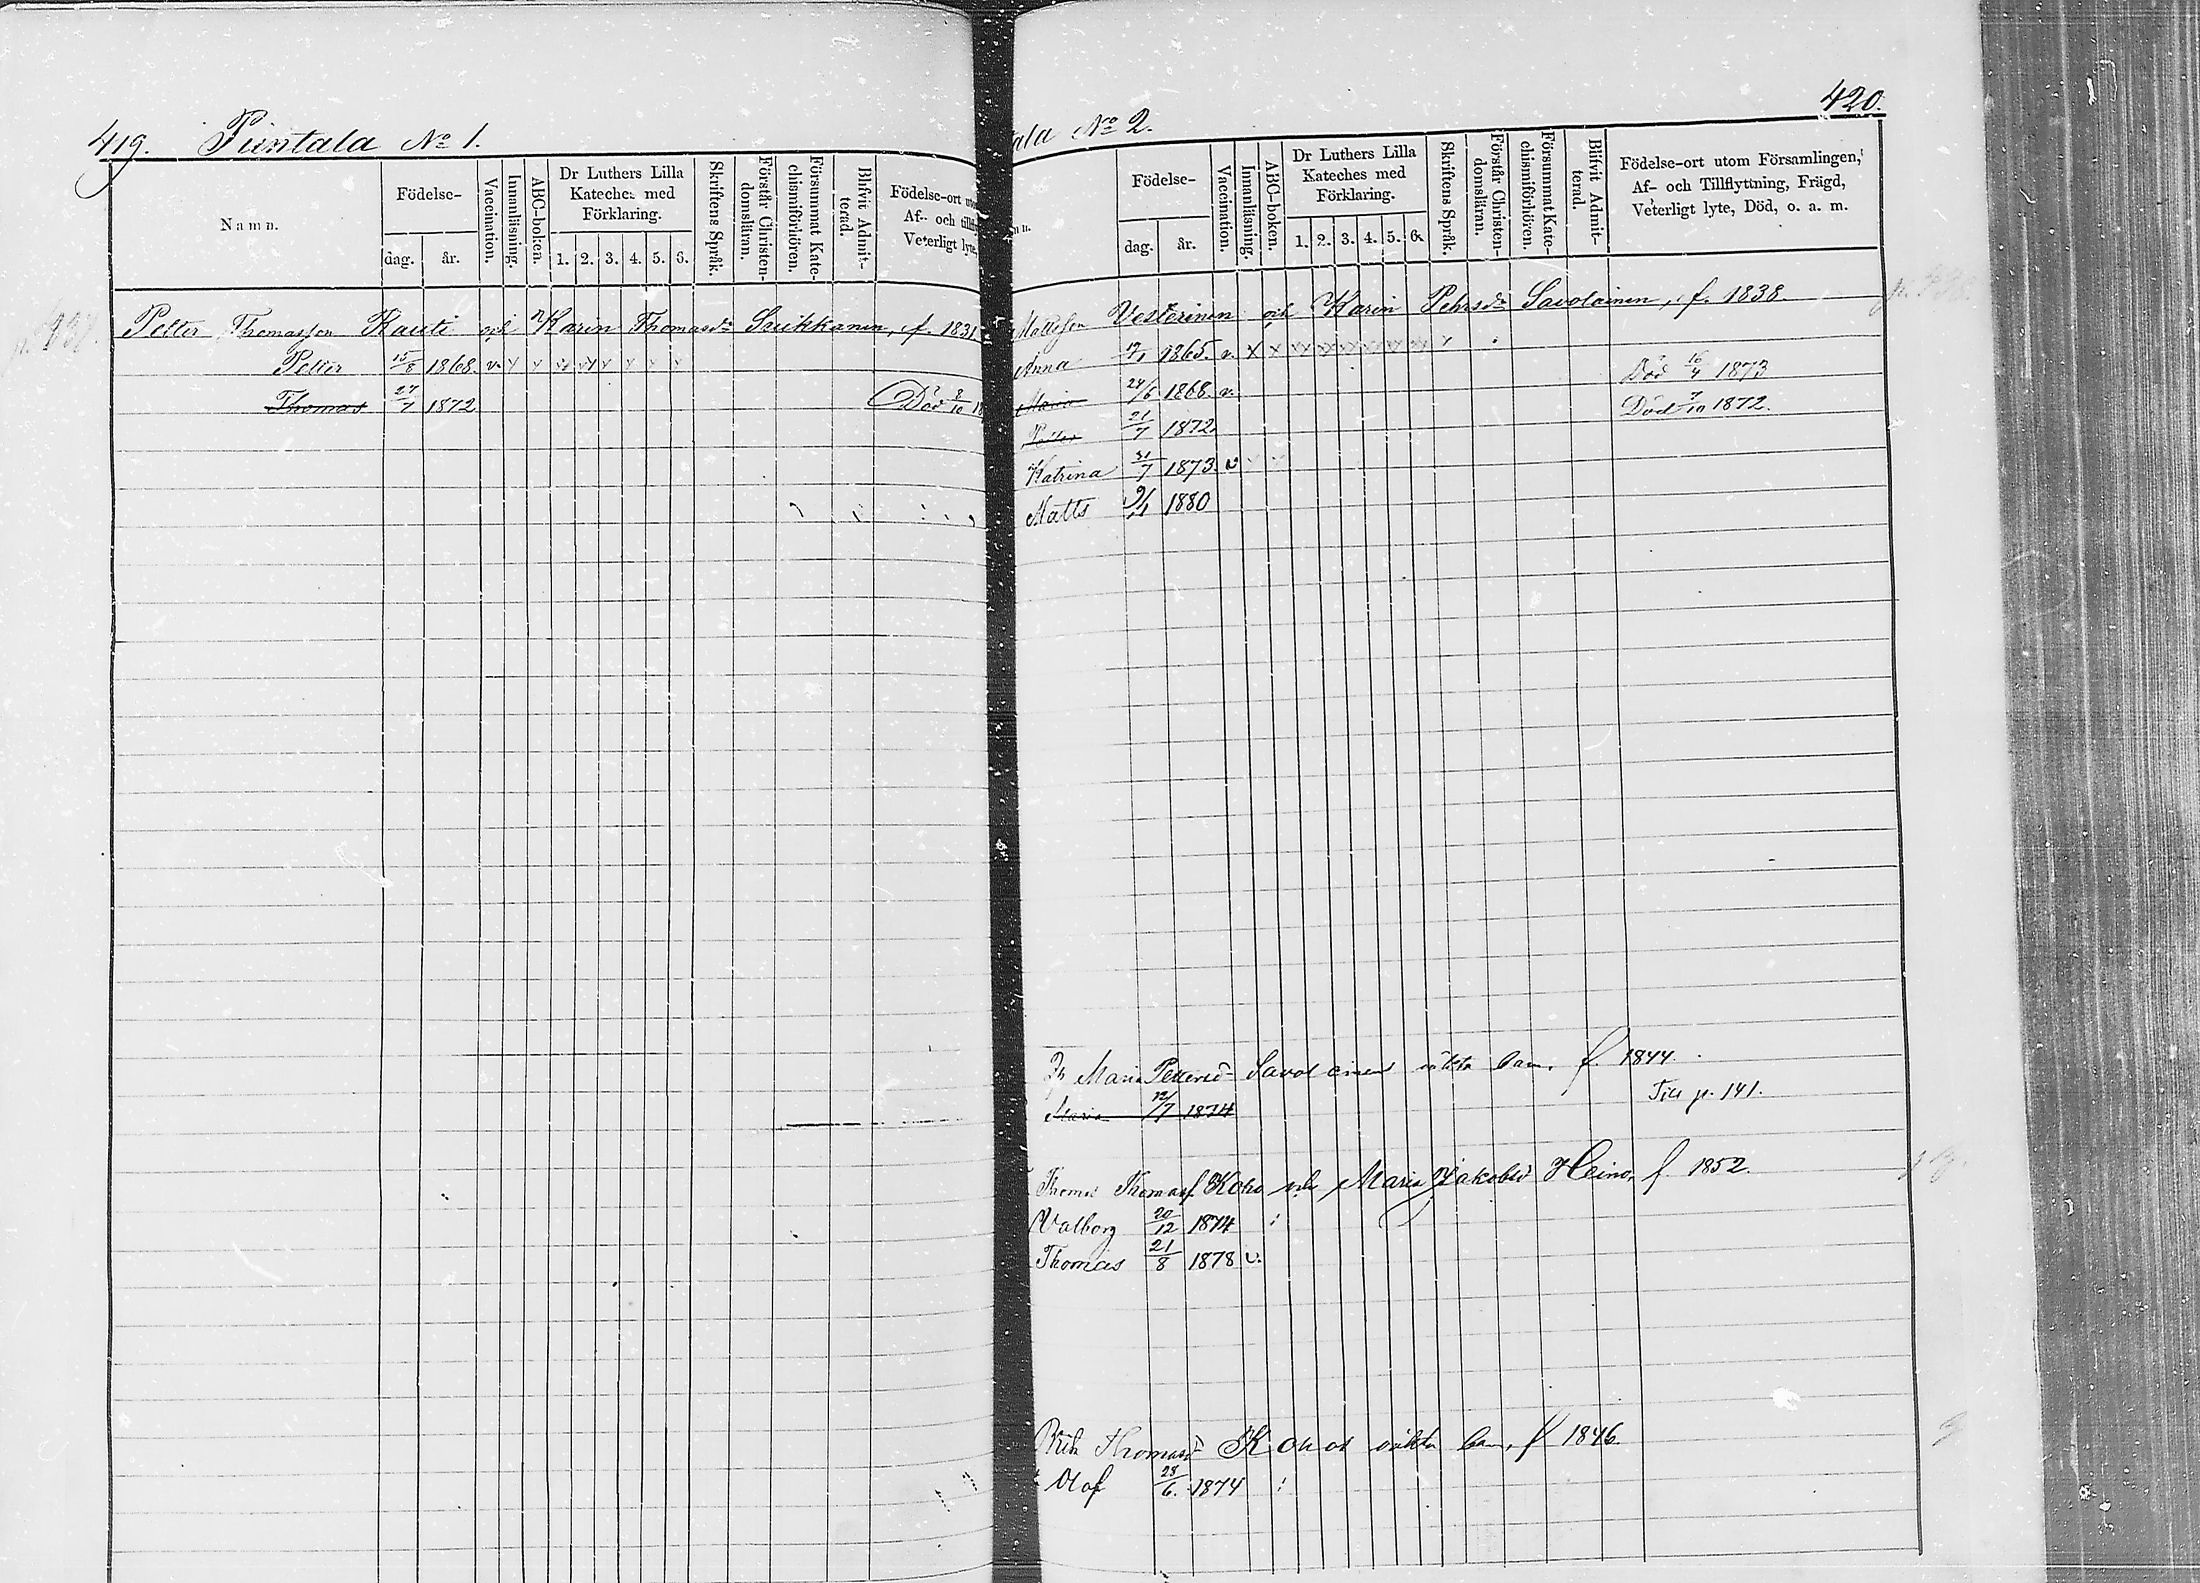 419. Puntala No 1.
Namn.
Födelse-
dag. år.
Vaccination.
Innanläsning.
ABC-boken.
Dr Luthers Lilla Kateches med Förklaring.
1. 2. 3. 4. 5. 6.
Skriftens Språk.
Förstår Christen-domsläran.
Försummat Kate-chismiförhören.
Blifvit Admit-terad.
Födelse-ort
Af- och
Veterligt lyte,
Petter Thomasson Rauti och Karin Thomasdr Suikkanen, f. 1831
Petter 15/8 1868. v.
Thomas 27/7 1872 Död 8/10 18
420.
tala No 2.
Födelse-
dag. år.
Vaccination.
Innanläsning.
ABC-boken.
Dr Luthers Lilla Kateches med Förklaring.
1. 2. 3. 4. 5. 6.
Skriftens Språk.
Förstår Christen-domsläran.
Försummat Kate-chismiförhören.
Blifvit Admit-terad.
Födelse-ort utom Församlingen,
Af- och Tillflyttning, Frägd,
Veterligt lyte, Död, o. a. m.
Mattsson Vesterinen och Karin Pehrsdr Savolainen, f. 1838.
Anna 1865. v.
Maria 24/6 1868. v. Död 16/4 1873
Petter 21/7 1872. Död 7/10 1872.
Katrina 31/7 1873. v
Matts 9/1 1880
Maria Pettersd. Savolainens oäkta barn, f. 1844.
Maria 12/7 1874 Till p. 141.
Thomas Thomasf. Koho och Maria Jakobsd Heino, f. 1852.
Valborg 20/12 1874
Thomas 21/8 1878 v.
Thomasd oäkta barn, f 1846.
Olof 28/6. 1874